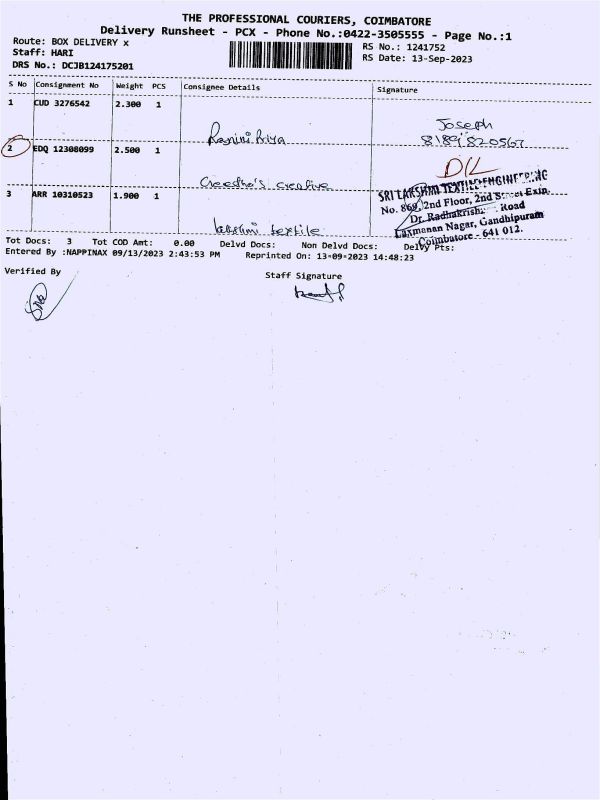 THE PROFESSIONAL COURIERS, COIMBATORE
Delivery Runsheet - PCX - Phone No.:0422-3505555 - Page No.:1
Route: BOX DELIVERY x
RS No.: 1241752
Staff: HARI
RS Date: 13-Sep-2023
DRS No.: DCJB124175201
S No Consignment No Weight PCS Consignee Details Signature
1 CUD 3276542 2.300 1
Joseph
8189820567
2 EDQ 12308099 2.500 1
D/L
creative
3 ARR 10310523 1.900 1
SRI LAKSHMI TEXTILE ENGINEERING
No. 869, 2nd Floor, 2nd Street Extn.
Dr. Radhakrishnan Road
Laxmanan Nagar, Gandhipuram
Coimbatore - 641 012.
lakshmi textile
Tot Docs: 3 Tot COD Amt: 0.00 Delvd Docs: Non Delvd Docs: Delvy Pts:
Entered By :NAPPINAX 09/13/2023 2:43:53 PM Reprinted On: 13-09-2023 14:48:23
Verified By
Staff Signature